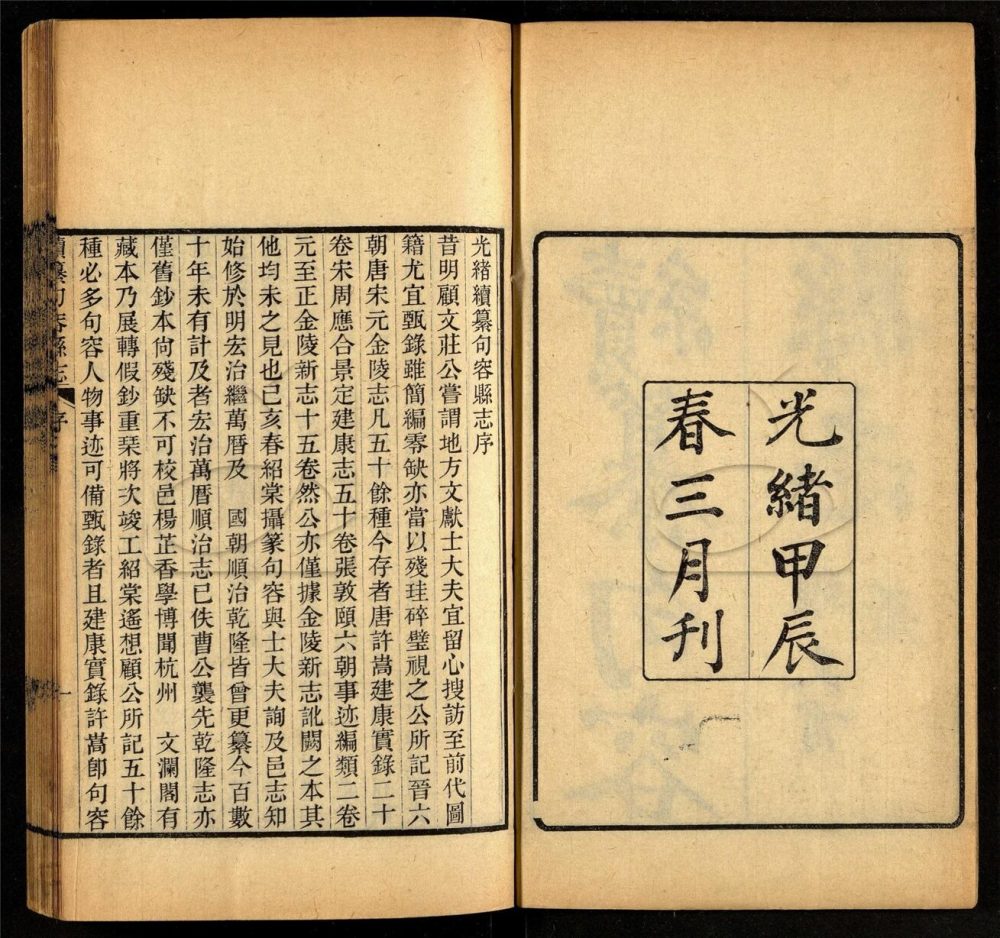 光緒甲辰
春三月刊
光緒續纂句容縣志序
昔明顧文莊公嘗謂地方文獻士大夫宜留心搜訪至前代圖
籍尤宜甄錄雖簡編零缺亦當以殘珪碎璧視之公所記晉六
朝唐宋元金陵志凡五十餘種今存者唐許嵩建康實錄二十
卷宋周應合景定建康志五十卷張敦頤六朝事迹編類二卷
元至正金陵新志十五卷然公亦僅據金陵新志訛闕之本其
他均未之見也己亥春紹棠攝篆句容與士大夫詢及邑志知
始修於明宏治繼萬曆及　國朝順治乾隆皆曾更纂今百數
十年未有計及者宏治萬曆順治志已佚曹公襲先乾隆志亦
僅舊鈔本尙殘缺不可校邑楊芷香學博聞杭州　文瀾閣有
藏本乃展轉假鈔重栞將次竣工紹棠遙想顧公所記五十餘
種必多句容人物事迹可備甄錄者且建康實錄許嵩卽句容
續纂句容縣志　序　一